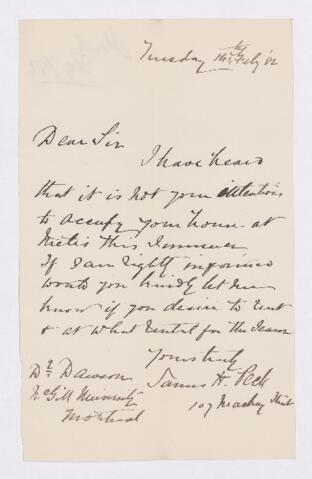 Tuesday 14th Feby 82
Dear Sir
I have heard
that it is not your intention
to occupy your house at
Metis this Summer
If I am rightly informed
would you kindly let me
know if you desire to rent
& at what rental for the season
Yours truly
James H. Peck
107 Mackay Street
Dr. Dawson
McGill University
Montreal